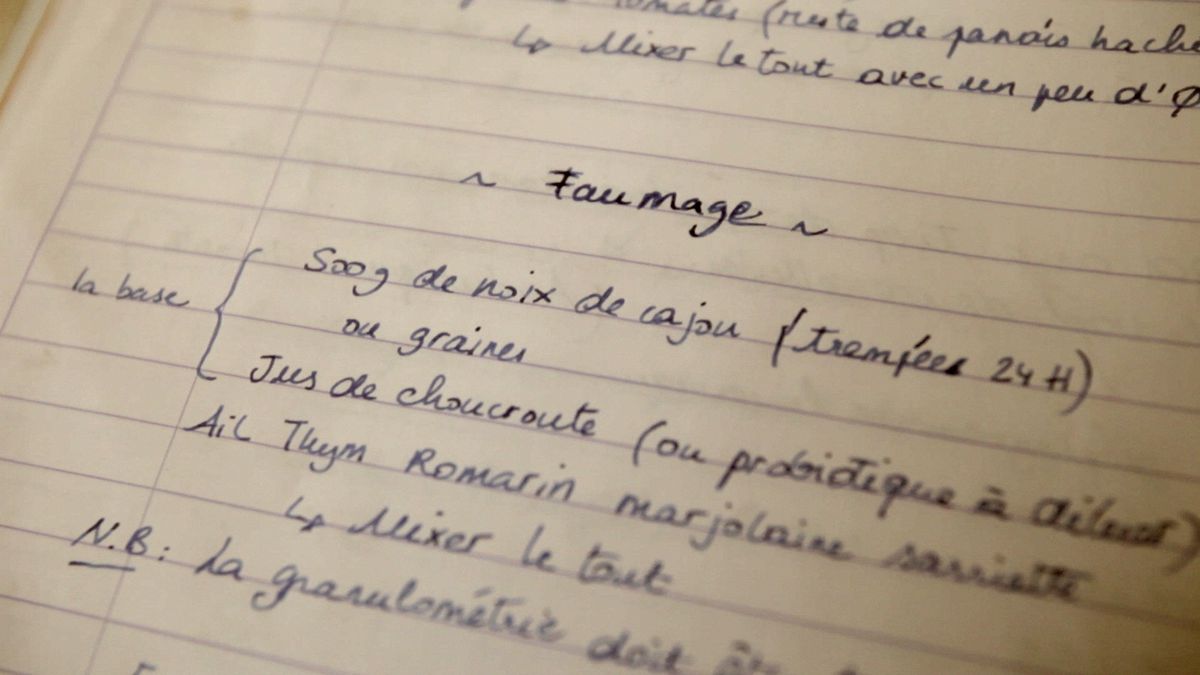 tomates (reste de panais haché
↳ Mixer le tout avec un peu d'
~ Faumage ~
la base { 500g de noix de cajou (trempées 24H)
ou graines
Jus de choucroute (ou probiotique à diluer)
Ail Thym Romarin marjolaine sarriette
↳ Mixer le tout
N.B: La granulométrie doit être